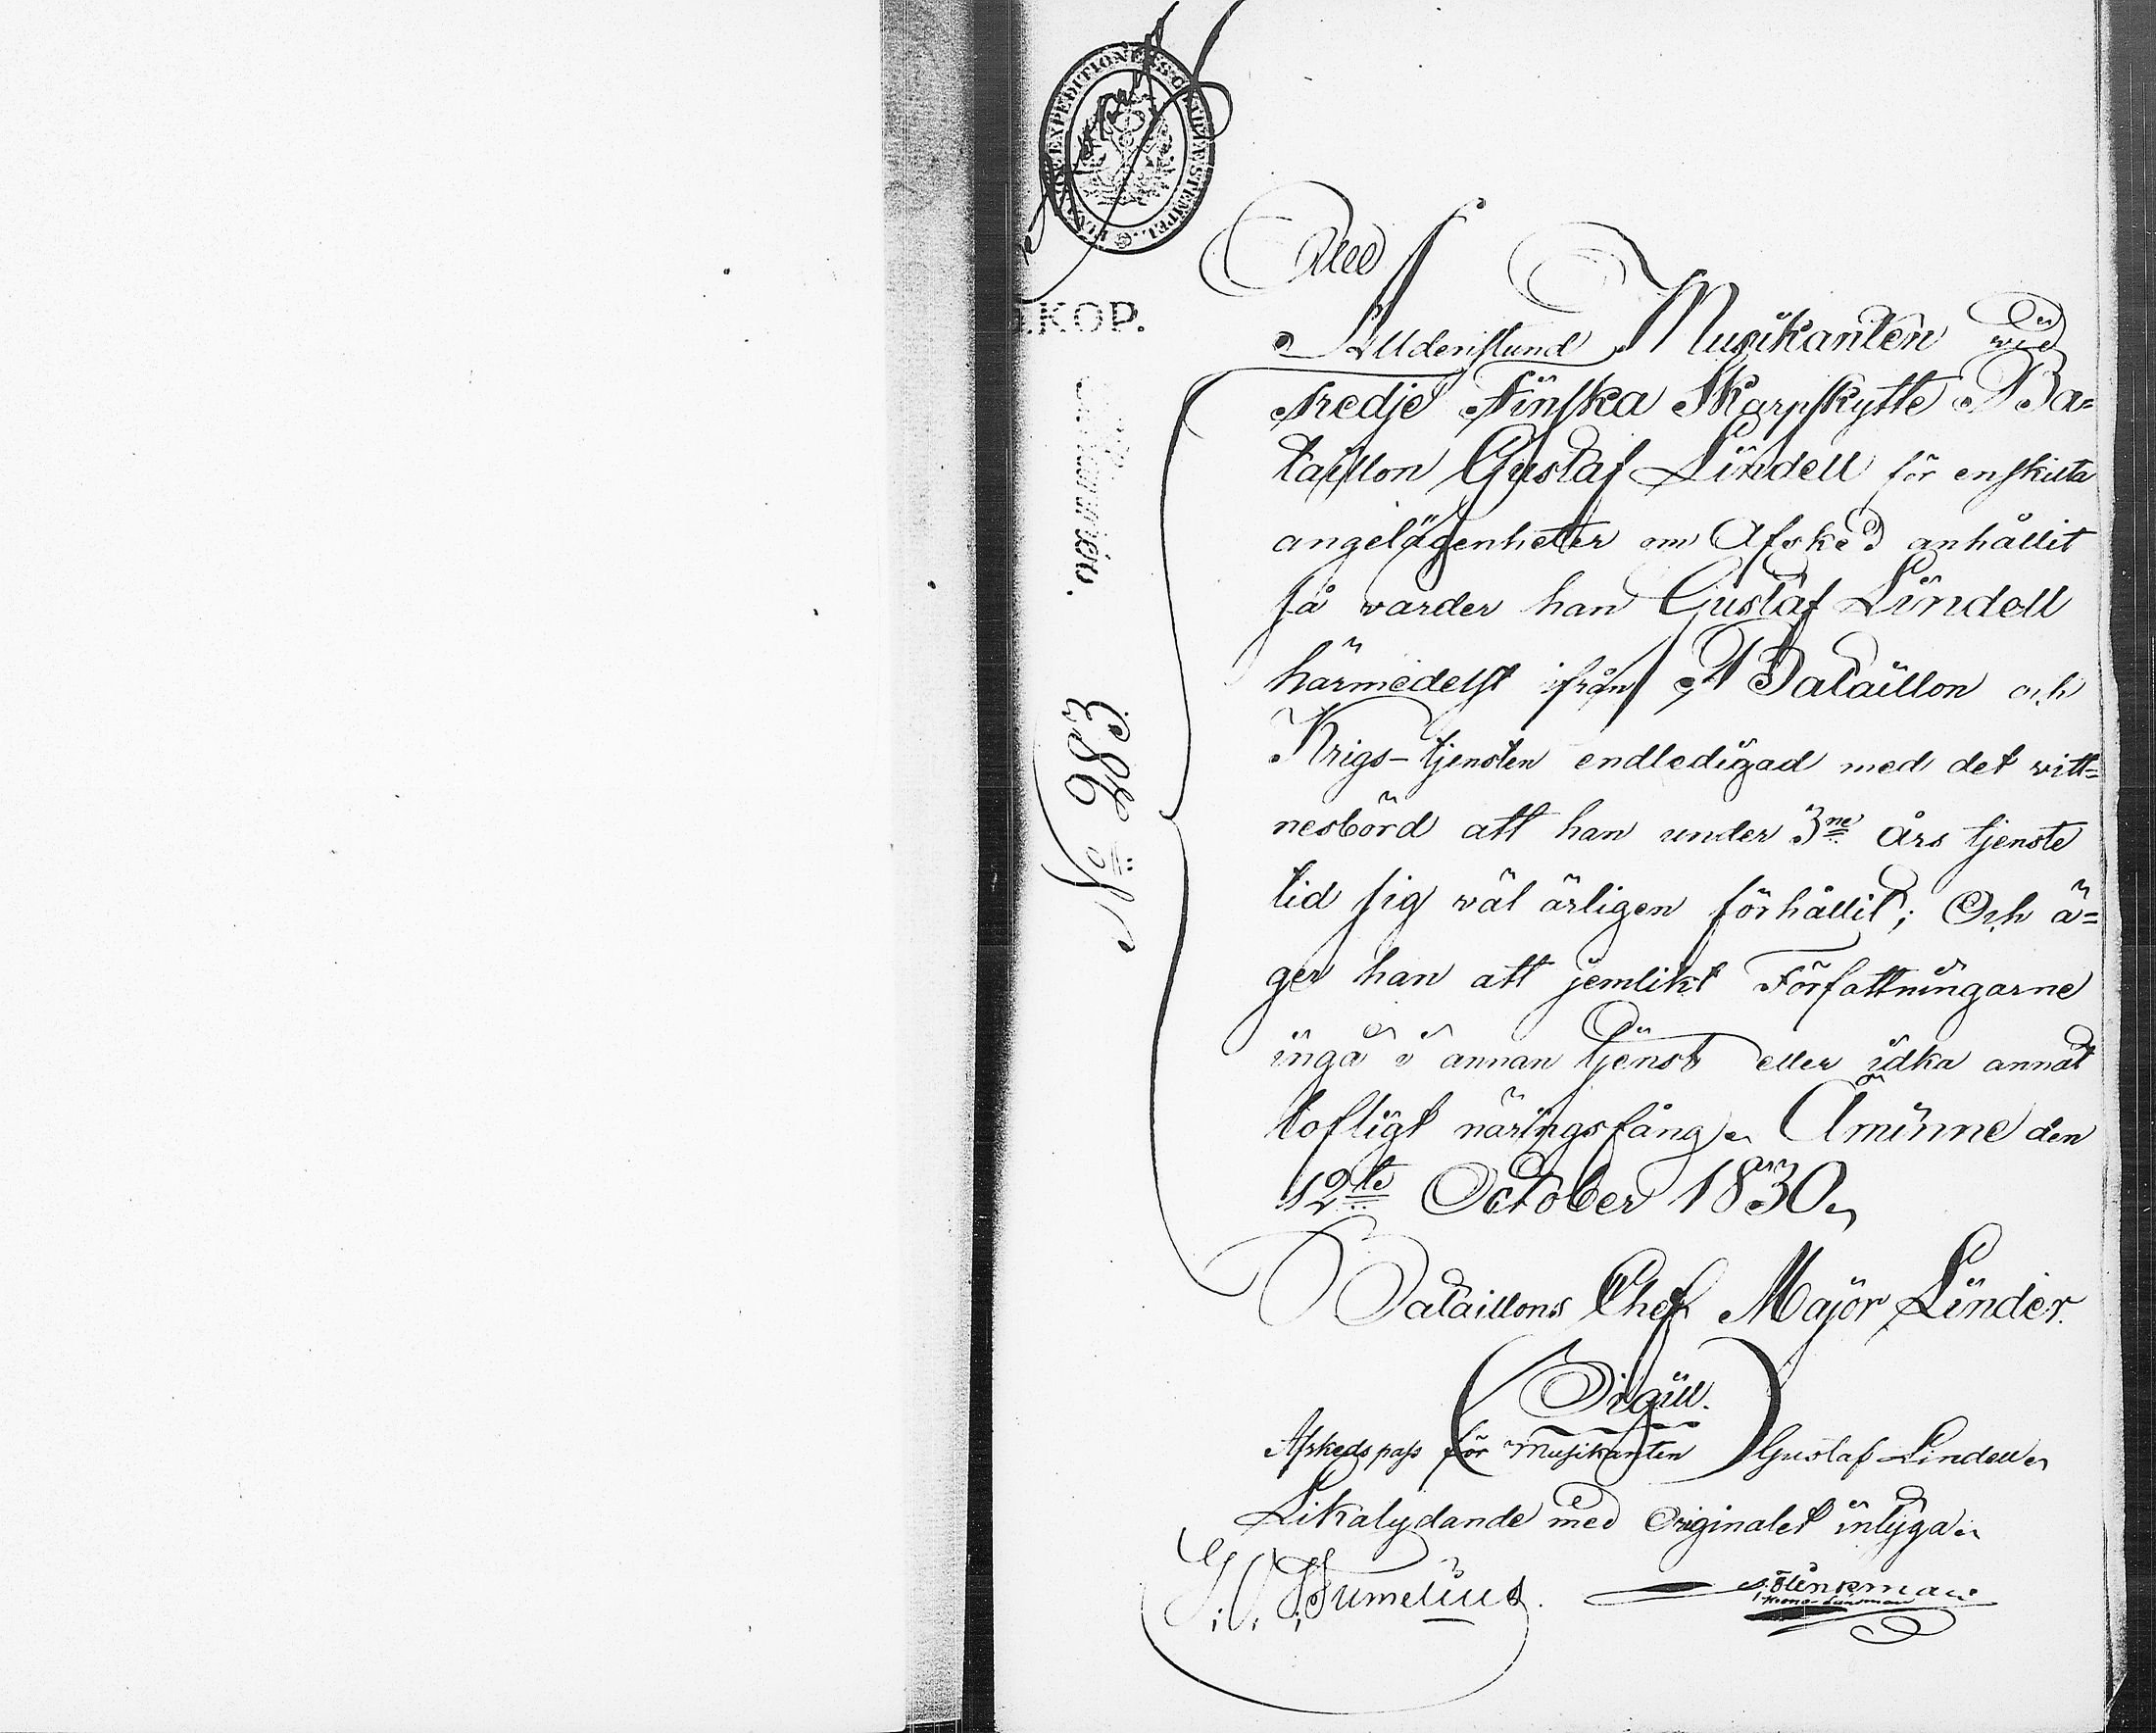 KOP.
№ 283.
Musikanten wid
tredje Finska Skarpskytte Ba=
taillon Gustaf Lindell för enskilta
angelägenheter om Afsked anhållit
så warder han Gustaf Lindell
härmedelst ifrån Bataillon och
Krigs-tjensten endledigad med det witt=
nesbörd att han under 3ne års tjenste
tid sig wäl ärligen förhållit; Och ä=
ger han att jemlikt Författningarne
ingå i annan tjenst eller idka annat
lofligt näringsfång. Åminne den
12te October 1830.
Bataillons Chef Major Linder.
(Sigill.)
Afskeds pass för Musikanten Gustaf Lindell.
Likalydande med Originalet intyga.